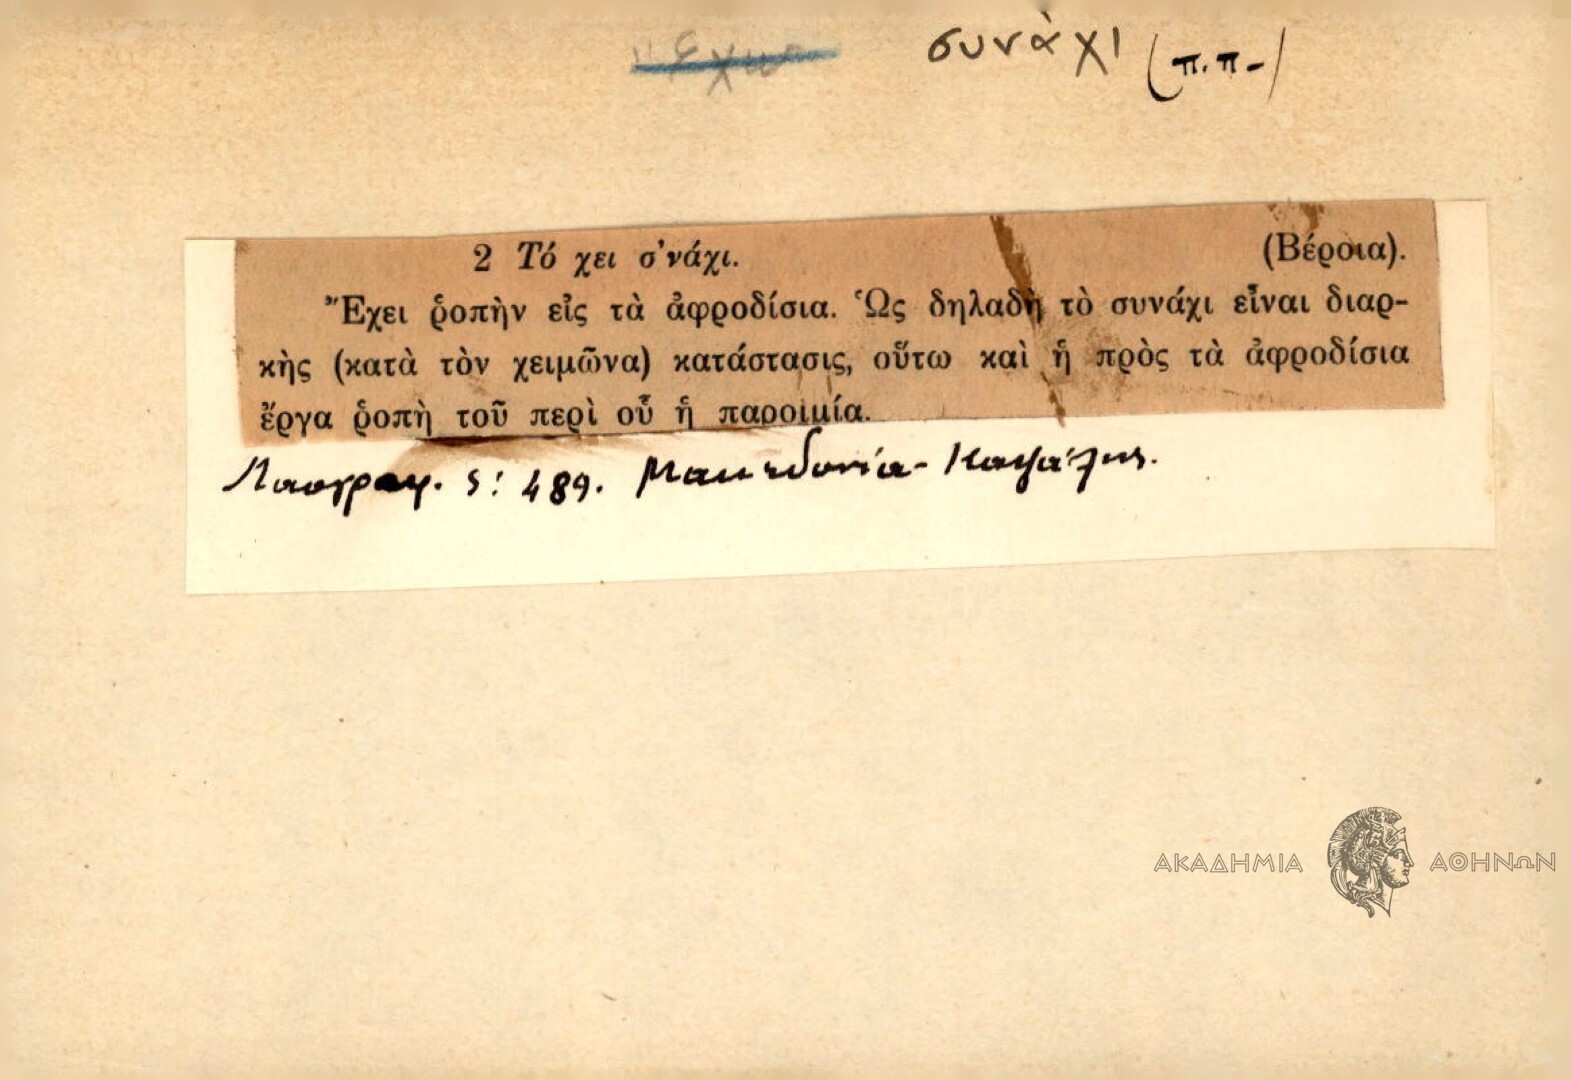 ἔχω συνάχι (π.π-)
2 Τό χει σ'νάχι. (Βέροια).
Ἔχει ῥοπὴν εἰς τὰ ἀφροδίσια. Ὡς δηλαδὴ τὸ συνάχι εἶναι διαρ-
κὴς (κατὰ τὸν χειμῶνα) κατάστασις, οὕτω καὶ ἡ πρὸς τὰ ἀφροδίσια
ἔργα ῥοπὴ τοῦ περὶ οὗ ἡ παροιμία.
Λαογραφ. ς: 489. Μακεδονία-
ΑΚΑΔΗΜΙΑ ΑΘΗΝΩΝ